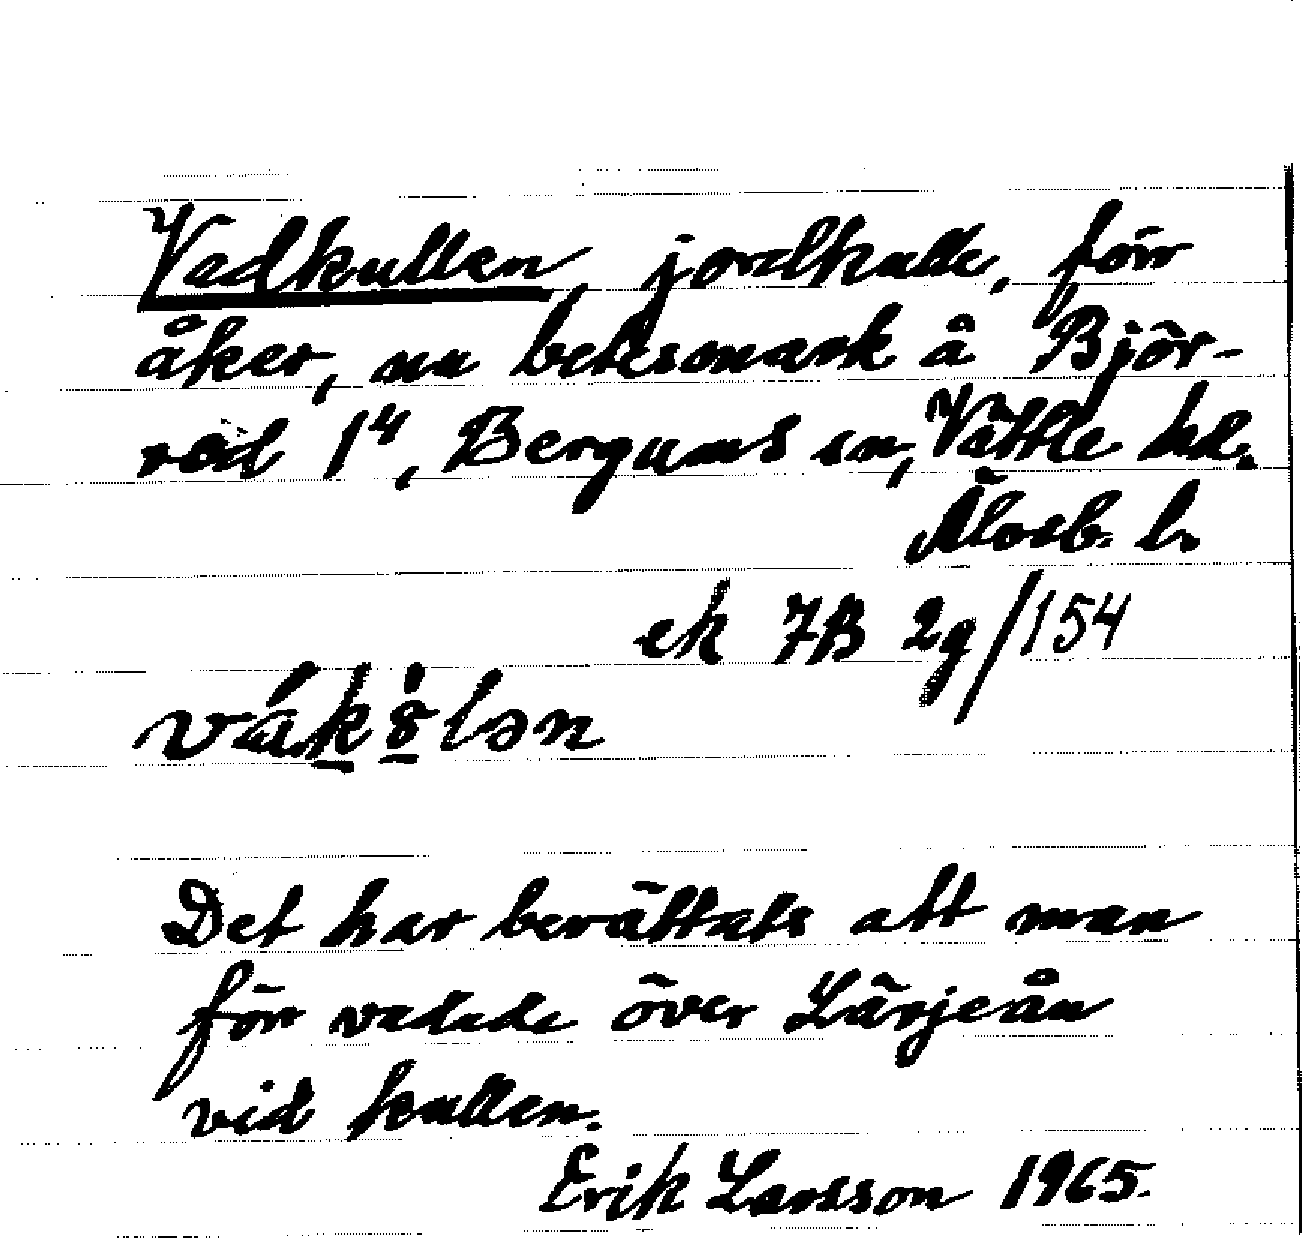 Vadkullen, jordkulle, förr
åker, nu betesmark å Björ-
röd 1⁴, Bergums sn, Vättle hd.
Älvsb. l.
ek 7B 2g/154
Det har berättats att man
förr vadade över Lärjeån
vid kullen.
Erik Larsson 1965.